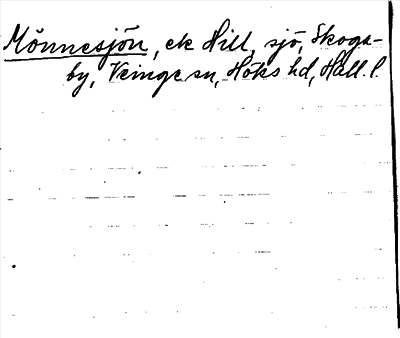 Mönnesjön, ek Hill, sjö, Skogs-
by, Veinge sn, Höks hd, Hall. l.